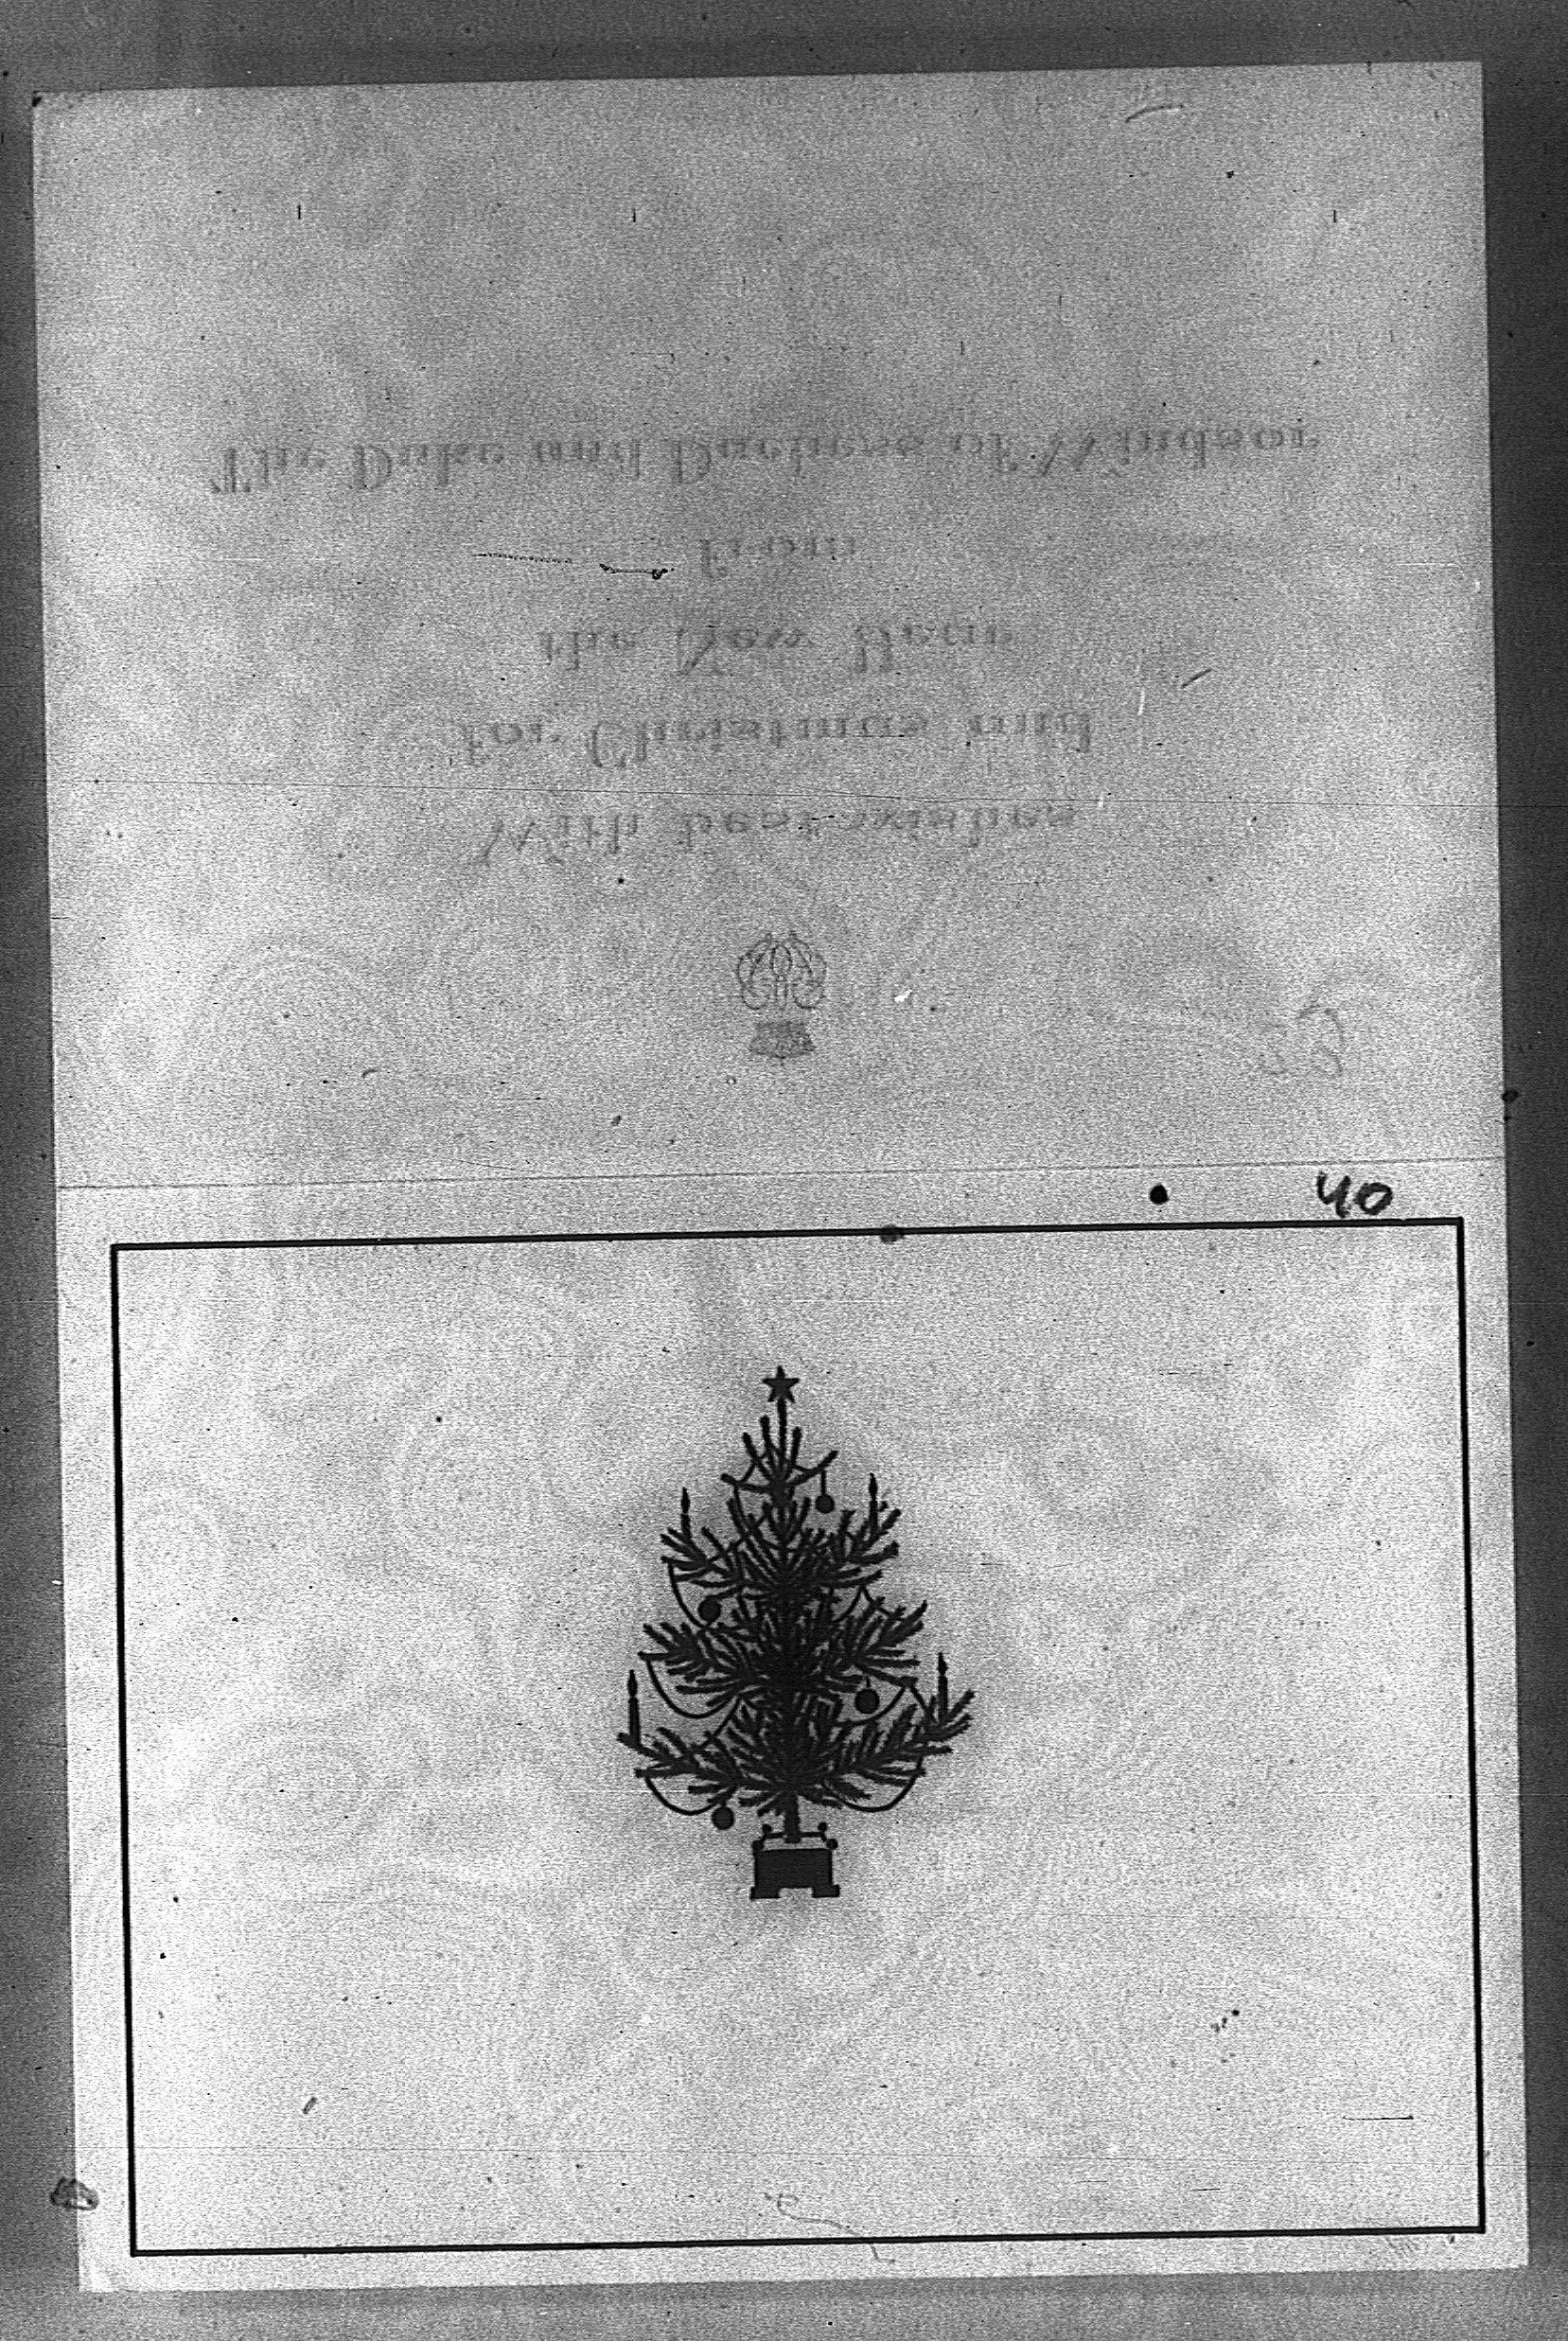 With best wishes
for Christmas and
the New Year
from
The Duke and Duchess of Windsor
40